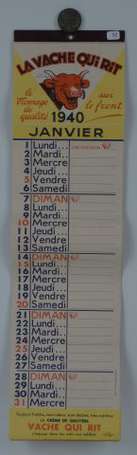 LA VACHE QUI RIT
le fromage de qualité
sur le front
1940
JANVIER
1 Lundi...
2 Mardi..
3 Mercre
4 Jeudi...
5 Vendre
6 Samedi
7 DIMAN
8 Lundi...
9 Mardi..
10 Mercre
11 Jeudi...
12 Vendre
13 Samedi
14 DIMAN
15 Lundi...
16 Mardi..
17 Mercre
18 Jeudi...
19 Vendre
20 Samedi
21 DIMAN
22 Lundi...
23 Mardi..
24 Mercre
25 Jeudi...
26 Vendre
27 Samedi
28 DIMAN
29 Lundi...
30 Mardi..
31 Mercre
LA CRÈME DE GRUYÈRE
VACHE QUI RIT